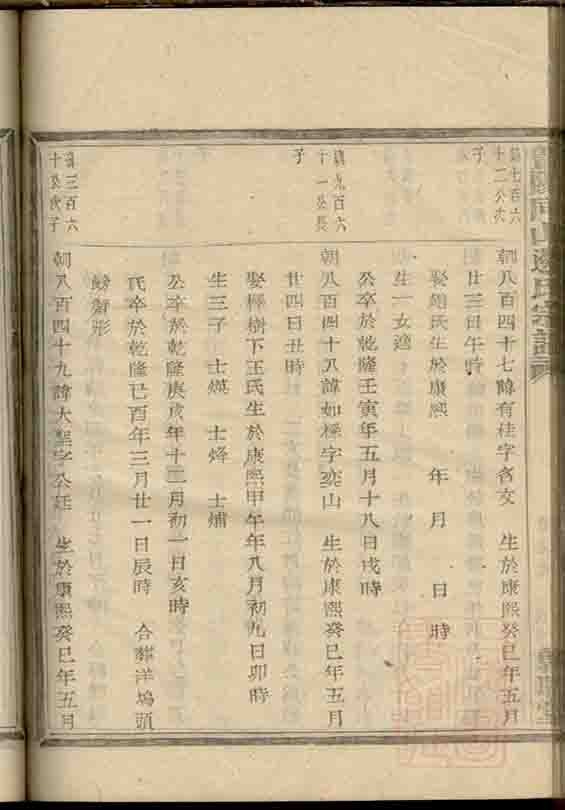 朝八百四十七諱有桂字含文　生於康熙癸巳年五月
廿三日午時
娶趙氏生於康熙　年　月　日　時
生一女適
公卒於乾隆壬寅年五月十八日戌時
朝八百四十八諱如標字奕山　生於康熙癸巳年五月
廿四日丑時
娶櫸樹下王氏生於康熙甲午年八月初九日卯時
生三子　士煐　士烽　士熽
公卒於乾隆庚　年十二月初一日亥時
氏卒於乾隆己酉年三月廿一日辰時　合葬洋塢頭
螃蟹形
朝八百四十九諱大聖字公廷　生於康熙癸巳年五月
七百六
十二公次
子
九百六
十一公長
子
三百六
十公次子